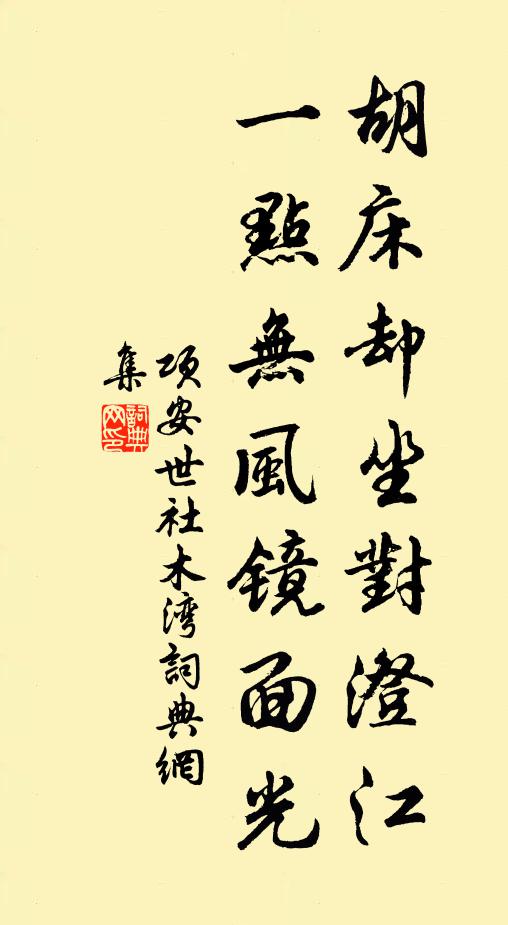 胡床却坐對澄江
一點無風镜面光
项安世社木湾詞典網
集
詞典
网印